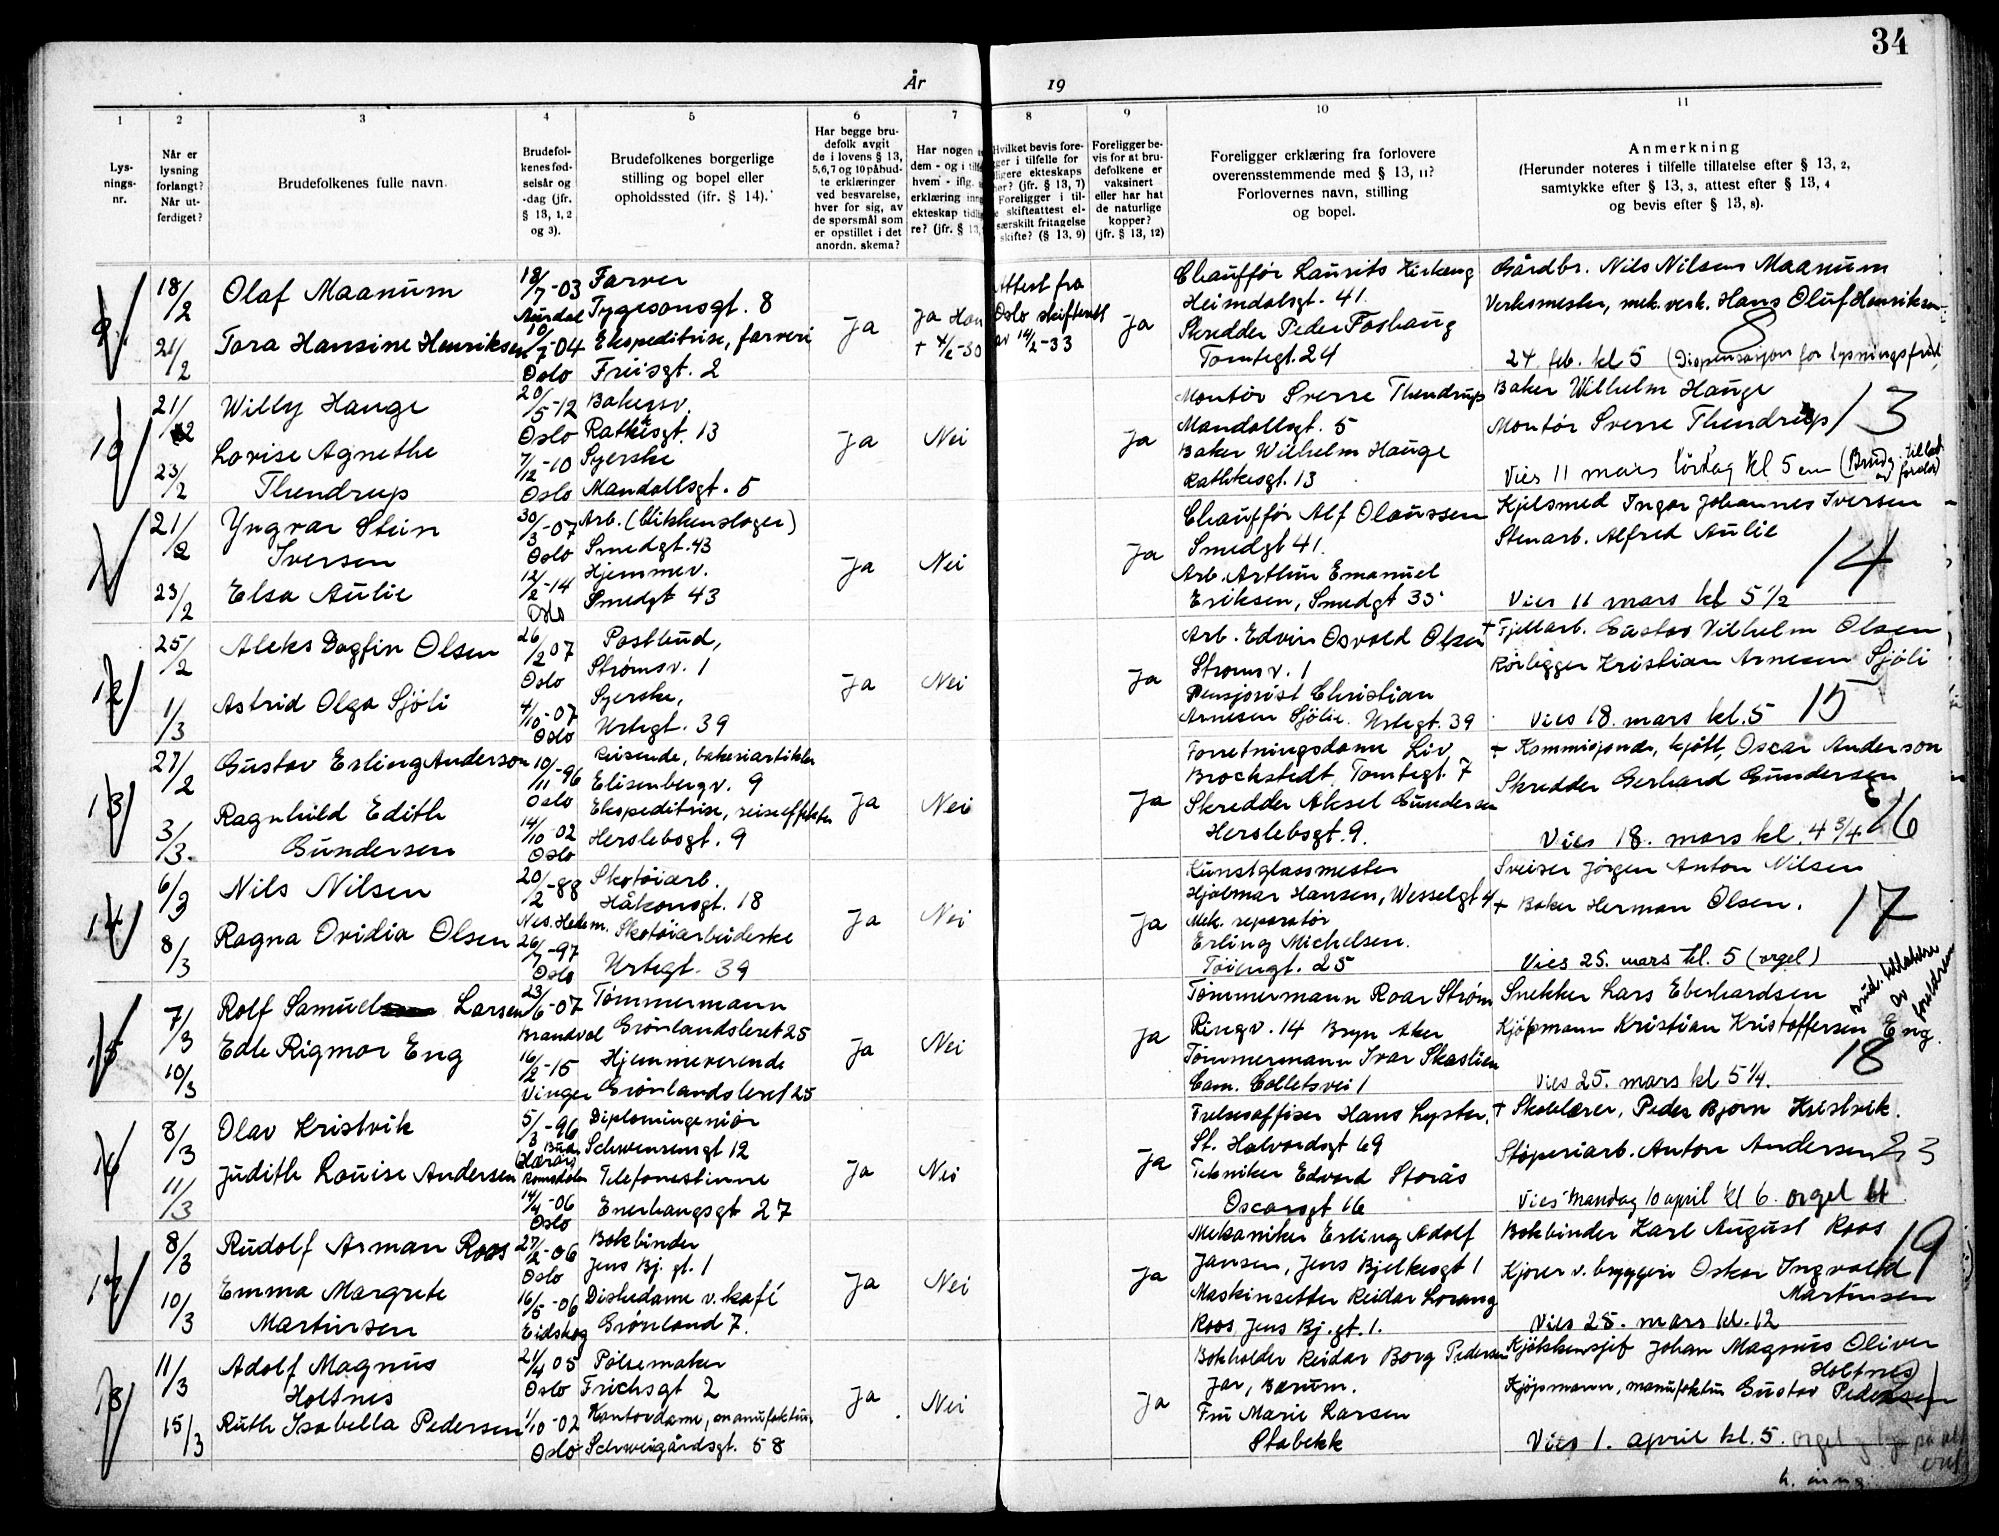 34
År 19
1
2
3
4
5
6
7
8
9
10
11
Lys-
nings-
nr.
Når er
lysning
forlangt?
Når ut-
ferdiget?
Brudefolkenes fulle navn.
Brudefol-
kenes fød-
selsår og
-dag (jfr.
§ 13, 1, 2
og 3).
Brudefolkenes borgerlige
stilling og bopel eller
opholdssted (jfr. § 14).
Har begge bru-
defolk avgit
de i lovens § 13,
5, 6, 7 og 10 påbud-
te erklæringer
ved besvarelse,
hver for sig, av
de spørsmål som
er opstillet i det
anordn. skema?
Har nogen
dem - og i tilf
hvem - iflg.
erklæring inng
ekteskap tidli
re? (jfr. § 13,
Hvilket bevis fore-
ger i tilfelle for
ligere ekteskaps
hør? (jfr. § 13, 7)
Foreligger i til-
e skifteattest el-
særskilt fritagelse
skifte? (§ 13, 9)
Foreligger be-
vis for at bru-
defolkene er
vaksinert
eller har hat
de naturlige
kopper?
(jfr. § 13, 12)
Foreligger erklæring fra forlovere
overensstemmende med § 13, 11?
Forlovernes navn, stilling
og bopel.
Anmerkning
(Herunder noteres i tilfelle tillatelse efter § 13, 2,
samtykke efter § 13, 3, attest efter § 13, 4
og bevis efter § 13, 8).
9.
18/2
Olaf Maanum
18/7-03
Aurdal
Farver
Tygesonsgt. 8
21/2
Tora Hansine Henriksen
10/7-04
Oslo
Ekspeditrise, farveri
Friisgt. 2
Ja
Ja Han
+ 4/2-30
Attest fra
Oslo skifterett
av 14/2-33
Ja
Chauffør Laurits Kirkeng
Heimdalsgt. 41.
Skredder Peder Foshaug
Tomtegt. 24
Gårdbr. Nils Nilsens Maanum
Verksmester, mek. verk. Hans Oluf Henriksen
8
24 feb. kl 5 (Dispensasjon for lysningsfrist)
10
21/2
Willy Hauge
20/5-12
Oslo
Bakersv.
Rathkesgt. 13
23/2
Lovise Agnethe
Thendrup
7/12-10
Oslo
Syerske
Mandallsgt. 5
Ja
Nei
Ja
Montør Sverre Thendrup
Mandallsgt. 5
Baker Wilhelm Hauge
Rathkesgt. 13
Baker Wilhelm Hauge
Montør Sverre Thendrup
13
Vies 11 mars lørdag kl 5 em (Brudg. tillat. av foreld)
11
21/2
Yngvar Stein
Iversen
30/3-07
Oslo
Arb. (blikkenslager)
Smedgt. 43
23/2
Elsa Aulie
12/2-14
Oslo
Hjemmev.
Smedgt 43
Ja
Nei
Ja
Chauffør Alf Olaussen
Smedgt 41.
Arb. Arthur Emanuel
Eriksen, Smedgt 35
Kjelsmed Ingar Johannes Iversen
Stenarb. Alfred Aulie
14
Vies 11 mars kl 5 1/2
12
25/2
Aleks Dagfin Olsen
26/2 07
Oslo
Postbud,
Strømsv. 1
1/3
Astrid Olga Sjöli
4/10-07
Oslo
Syerske,
Urtegt. 39
Ja
Nei
Ja
Arb. Edvin Osvald Olsen
Strømsv. 1
Pensjonist Christian
Arnesen Sjölie. Urtegt. 39
+ Fjellarb. Gustav Vilhelm Olsen
Rørlegger Kristian Arnesen Sjöli
Vies 18. mars kl. 5
15
13
27/2
Gustav Erling Anderson
10/11-96
Oslo
Reisende, bakeriartikler
Elisenbergv. 9
3/3.
Ragnhild Edith
Gundersen
14/10-02
Oslo
Ekspeditrise, reiseeffekter
Herslebsgt. 9
Ja
Nei
Ja
Forretningsdame Liv
Brochstedt, Tomtegt. 7
Skredder Aksel Gundersen
Herslebsgt. 9.
+ Kommisjonær, kjött, Oscar Anderson
Skredder Gerhard Gundersen
16
Vies 18. mars kl. 4 3/4
14
6/3
Nils Nilsen
20/2-88
Nes. Hedem.
Skotøiarb.
Håkonsgt. 18
8/3
Ragna Ovidia Olsen
26/7-97
Oslo
Skotøiarbeiderske
Urtegt. 39
Ja
Nei
Ja
Kunstglassmester
Hjalmar Hansen, Wesselgt 4
Mek. reparatør
Erling Michelsen.
Töiengt. 25
Sveiser Jørgen Anton Nilsen
+ Baker Herman Olsen.
17
Vies 25. mars kl. 5 (orgel)
15
7/3
Rolf Samuel Larsen
23/6-07
Brandval
Tømmermann
Grønlandsleret 25
10/3
Edle Rigmor Eng
16/2-15
Vinger
Hjemmeværende
Grønlandsleret 25
Ja
Nei
Ja
Tømmermann Roar Strøm
Ringv. 14 Bryn Aker
Tømmermann Ivar Skaslien
Cam. Colletsvei 1
Snekker Lars Eberhardsen
Kjøpmann Kristian Kristoffersen Eng.
brud. tillatelse av foreldrene
18
Vies 25. mars kl 5 1/4.
16
8/3
Olav Kristvik
5/3-96
Bud,
Romsdalen
Diplomingeniør
Schwensensgt 12
11/3
Judith Louise Andersen
14/4-06
Oslo
Telefonestinne
Enerhaugsgt 27
Ja
Nei
Ja
Frelsesoffiser Hans Lyster,
St. Halvardsgt 69
Tekniker Edvard Storås
Oscarsgt 16
+ Skolelærer, Peder Bjørn Kristvik.
Støperiarb. Anton Andersen
23
Vies Mandag 10 april kl 6. orgel
17
8/3
Rudolf Arman Roos
27/2-06
Oslo
Bokbinder
Jens Bj. gt. 1
10/3
Emma Margrete
Martinsen
16/5-06
Eidskog
Diskedame v. kafé
Grønland 7.
Ja
Nei
Ja
Mekaniker Erling Adolf
Jansen, Jens Bjelkesgt 1
Maskinsetter Reidar Lorang
Roos Jens Bj. gt. 1.
Bokbinder Karl August Roos
Kjører v. bryggeri Oskar Ingvald
Martinsen
19
Vies 25. mars kl. 12
18
11/3
Adolf Magnus
Holtnes
21/4 05
Oslo
Pølsemaker
Frichsgt 2
15/3
Ruth Isabella Pedersen
1/10-02
Oslo
Kontordame, manufaktur
Schweigårdsgt. 58
Ja
Nei
Ja
Bokholder Reidar Borg Pedersen
Jar, Bærum.
Fru Marie Larsen
Stabekk
Kjøkkensjef Johan Magnus Oliver
Holtnes
Kjøpmann, manufaktur Gustav Pedersen
Vies 1. april kl. 5. orgel